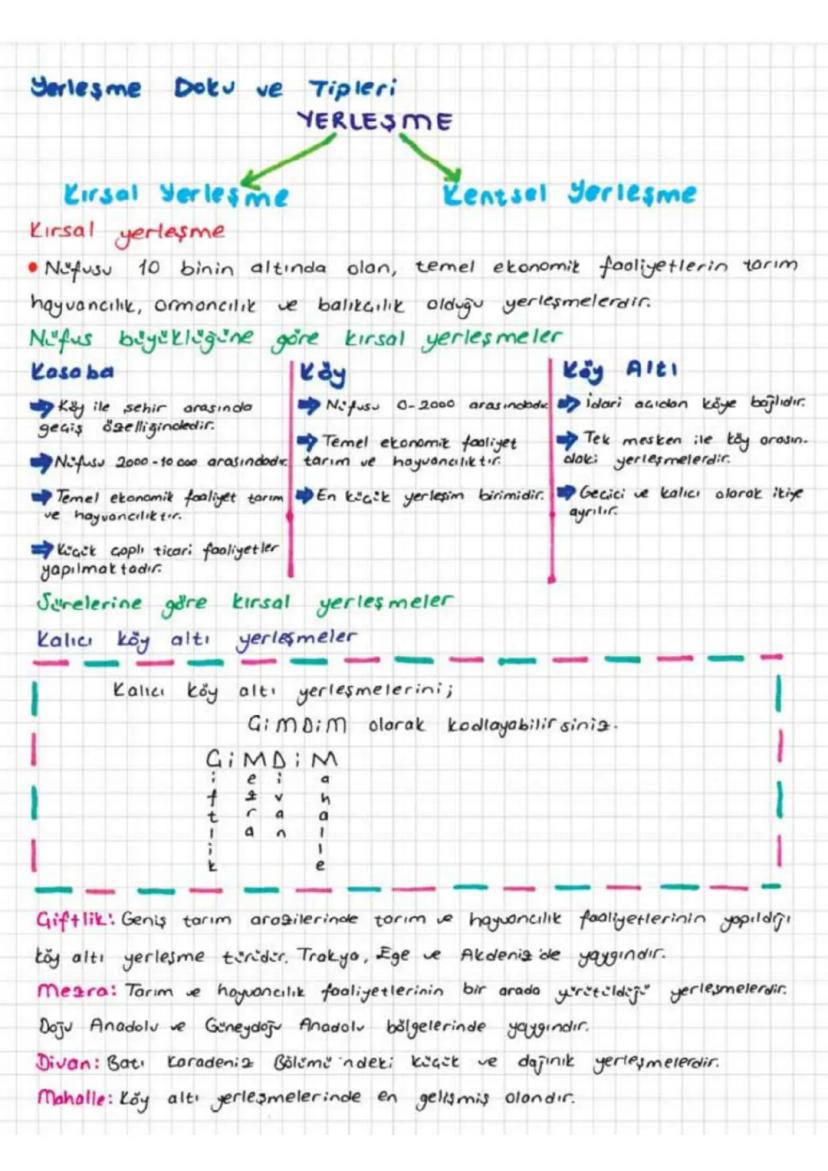 Yerleşme Doku ve Tipleri
YERLEŞME
Kırsal Yerleşme
Kentsel Yerleşme
Kırsal yerleşme
• Nüfusu 10 binin altında olan, temel ekonomik faaliyetlerin tarım
hayvancılık, ormancılık ve balıkçılık olduğu yerleşmelerdir.
Nüfus büyüklüğüne göre kırsal yerleşmeler
Kasaba
➡ Köy ile şehir arasında
geçiş özelliğindedir.
➡ Nüfusu 2000-10 000 arasındadır.
➡ Temel ekonomik faaliyet tarım
ve hayvancılıktır.
➡ Küçük çaplı ticari faaliyetler
yapılmaktadır.
Köy
➡ Nüfusu 0-2000 arasındadır
➡ Temel ekonomik faaliyet
tarım ve hayvancılıktır.
➡ En küçük yerleşim birimidir.
Köy Altı
➡ İdari açıdan köye bağlıdır.
➡ Tek mesken ile köy arasın-
daki yerleşmelerdir.
➡ Geçici ve kalıcı olarak ikiye
ayrılır.
Sürelerine göre kırsal yerleşmeler
Kalıcı köy altı yerleşmeler
Kalıcı köy altı yerleşmelerini;
ÇiMDiM olarak kodlayabilirsiniz.
ÇiMDiM
Çiftlik
Mezra
Divan
Mahalle
Çiftlik: Geniş tarım arazilerinde tarım ve hayvancılık faaliyetlerinin yapıldığı
köy altı yerleşme türüdür. Trakya, Ege ve Akdeniz'de yaygındır.
Mezra: Tarım ve hayvancılık faaliyetlerinin bir arada yürütüldüğü yerleşmelerdir.
Doğu Anadolu ve Güneydoğu Anadolu bölgelerinde yaygındır.
Divan: Batı Karadeniz Bölümü'ndeki küçük ve dağınık yerleşmelerdir.
Mahalle: Köy altı yerleşmelerinde en gelişmiş olandır.